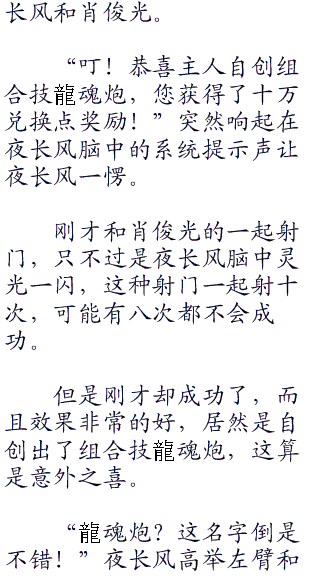 长风和肖俊光。
“叮！恭喜主人自创组
合技龍魂炮，您获得了十万
兑换点奖励！”突然响起在
夜长风脑中的系统提示声让
夜长风一愣。
刚才和肖俊光的一起射
门，只不过是夜长风脑中灵
光一闪，这种射门一起射十
次，可能有八次都不会成
功。
但是刚才却成功了，而
且效果非常的好，居然是自
创出了组合技龍魂炮，这算
是意外之喜。
“龍魂炮？这名字倒是
不错！”夜长风高举左臂和